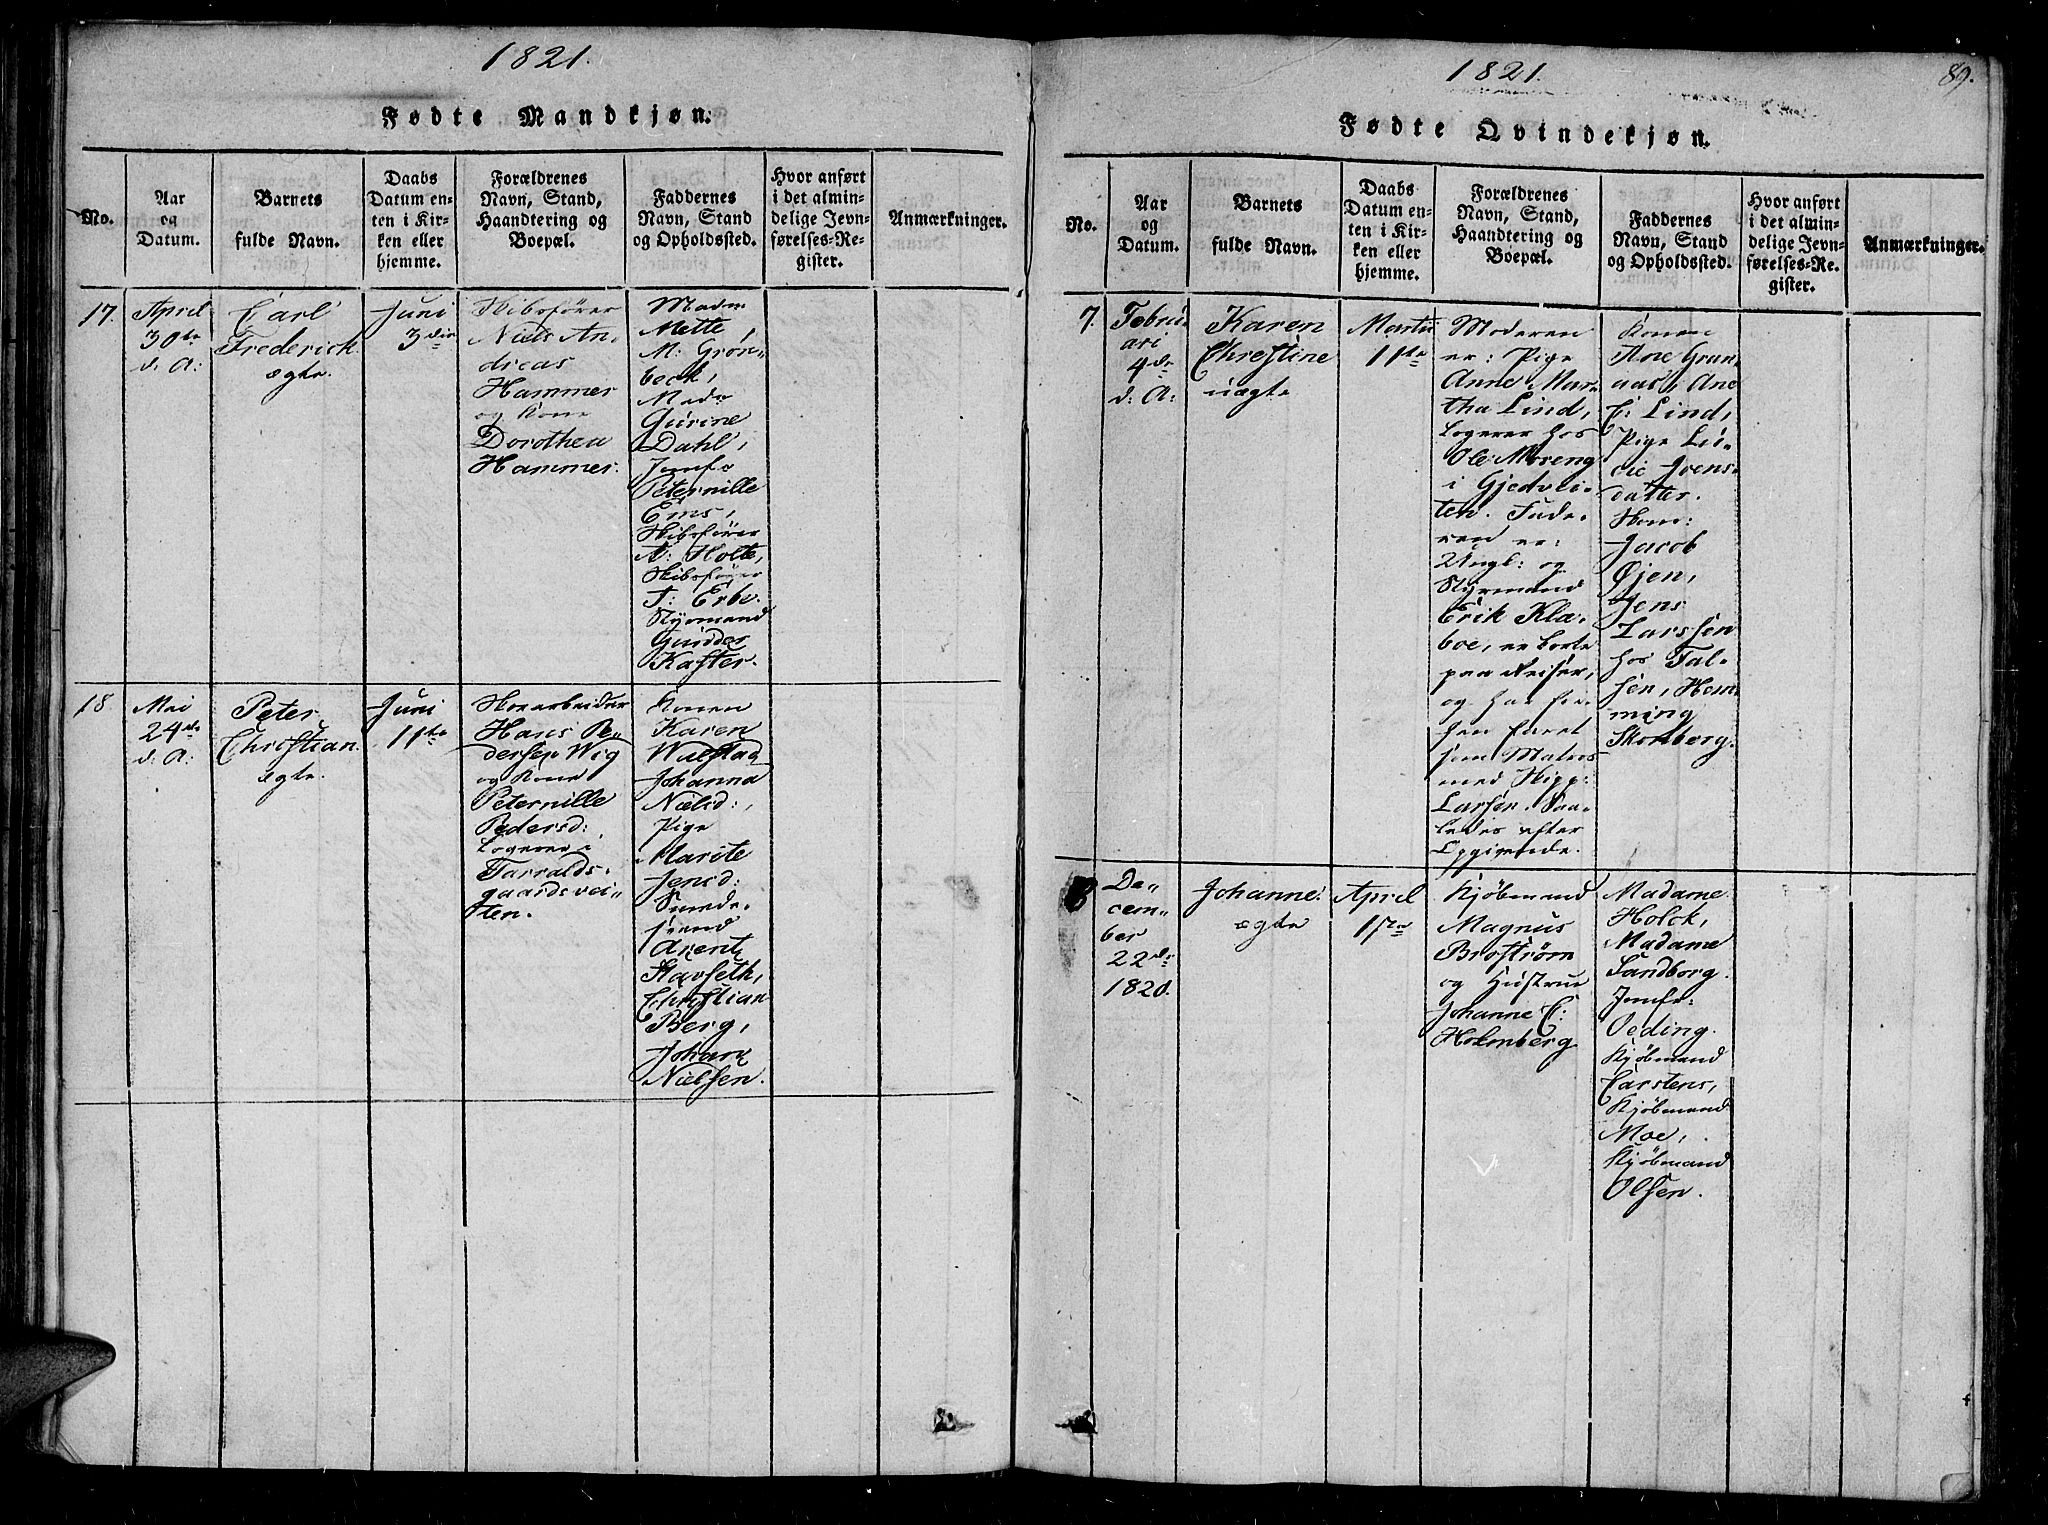 1821.
Fødte Mandkjøn.
No.
Aar
og
Datum.
Barnets
fulde Navn.
Daabs
Datum en-
ten i Kir-
ken eller
hjemme.
Forældrenes
Navn, Stand,
Haandtering og
Boepæl.
Faddernes
Navn, Stand
og Opholdssted.
Hvor anført
i det almin-
delige Jevn-
førelses-Re-
gister.
Anmærkninger.
17.
April
30te
d: A:
Carl
Frederick
ægte.
Juni
3die
Skibsfører
Niels An-
dreas
Hammer
og Kone
Dorothea
Hammer.
Madm
Mette
M: Grøn-
beck,
Mad:
Gurine
Dahl,
Jomfr
Peternille
Ems,
Skibsfører
A: Holte,
Skibsfører
T: Erbe.
Styrmand
Gunder
Kaster.
18
Mai
24de
d: A:
Peter
Christian
ægte.
Juni
11te
Hans Pe-
dersen Wig
og Kone
Peternille
Pedersd:
Logerer i
Tarralds-
gaardsvei-
ten.
Konen
Karen
Wulstad
Johanna
Nielsd:,
Pige
Marite
Jensd:
Smede-
svend
Arent
Stavseth,
Christian
Berg,
Johan
Nielsen.
1821.
89.
Fødte Qvindekjøn.
No.
Aar
og
Datum.
Barnets
fulde Navn.
Daabs
Datum en-
ten i Kir-
ken eller
hjemme.
Forældrenes
Navn, Stand,
Haandtering og
Boepæl.
Faddernes
Navn, Stand
og Opholdssted.
Hvor anført
i det almin-
delige Jevn-
førelses-Re-
gister.
Anmærkninger.
7.
Febru-
ari
4de
d: A:
Karen
Christine
uægte
Martii
11te
Moderen
er: Pige
Anne Mar-
tha Lind,
logerer hos
Ole Moreng
i Gjedvei-
ten. Fade-
ren er:
Ungk: og
Styrmand
Erik Kla-
boe, er borte
paa Reiser,
og har for-
hen faret
som Matros
med Skipp:
Larsen. Saa-
ledes efter
Opgivende.
Konen
Ane Gran-
aas, Ane
C: Lind,
Pige Lu-
cie Joens-
datter.
Jacob
Øjen,
Jens
Larssen
hos Fal-
sen, Hem-
ming
Skonberg.
8
De-
cem-
ber
22de
1820.
Johanne
ægte
April
1ste
Kjøbmand
Magnus
Broström
og Hustrue
Johanne C:
Holmberg
Madame
Holck,
Madame
Sandborg.
Jomfr:
Oeding.
Kjøbmand
Carstens,
Kjøbmand
Moe,
Kjøbmand
Olsen.